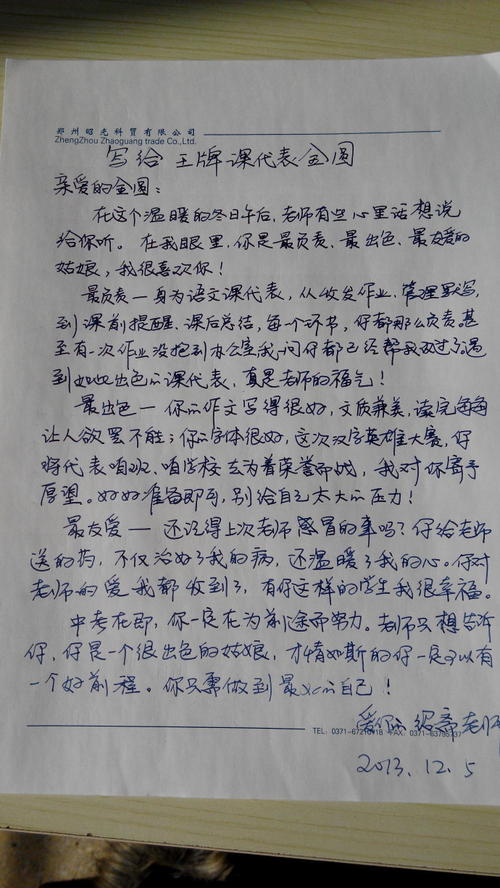 郑州昭光科贸有限公司
ZhengZhou Zhaoguang trade Co.,Ltd.
写给王牌课代表金圆
亲爱的金圆：
在这个温暖的冬日午后，老师有些心里话想说
给你听。在我眼里，你是最负责、最出色、最友爱的
姑娘，我很喜欢你！
最负责—身为语文课代表，从收发作业、管理默写，
到课前提醒、课后总结，每一个环节，你都那么负责。甚
至有一次作业没抱到办公室我一问你都已经帮我改过了。遇
到如此出色的课代表，真是老师的福气！
最出色—你的作文写得很好，文质兼美，读完每每
让人欲罢不能；你的字体很好，这次汉字英雄大赛，你
将代表咱班、咱学校去为着荣誉而战，我对你寄予
厚望。好好准备即可，别给自己太大的压力！
最友爱—还记得上次老师感冒的事吗？你给老师
送的药，不仅治好了我的病，还温暖了我的心。你对
老师的爱我都收到了，有你这样的学生我很幸福。
中考在即，你一定在为前途而努力。老师只想告诉
你，你是一个很出色的姑娘，才情如斯的你一定可以有
一个好前程。你只需做到最好的自己！
爱你的 老师
TEL: 0371-67210918 FAX: 0371-63795737
2013.12.5